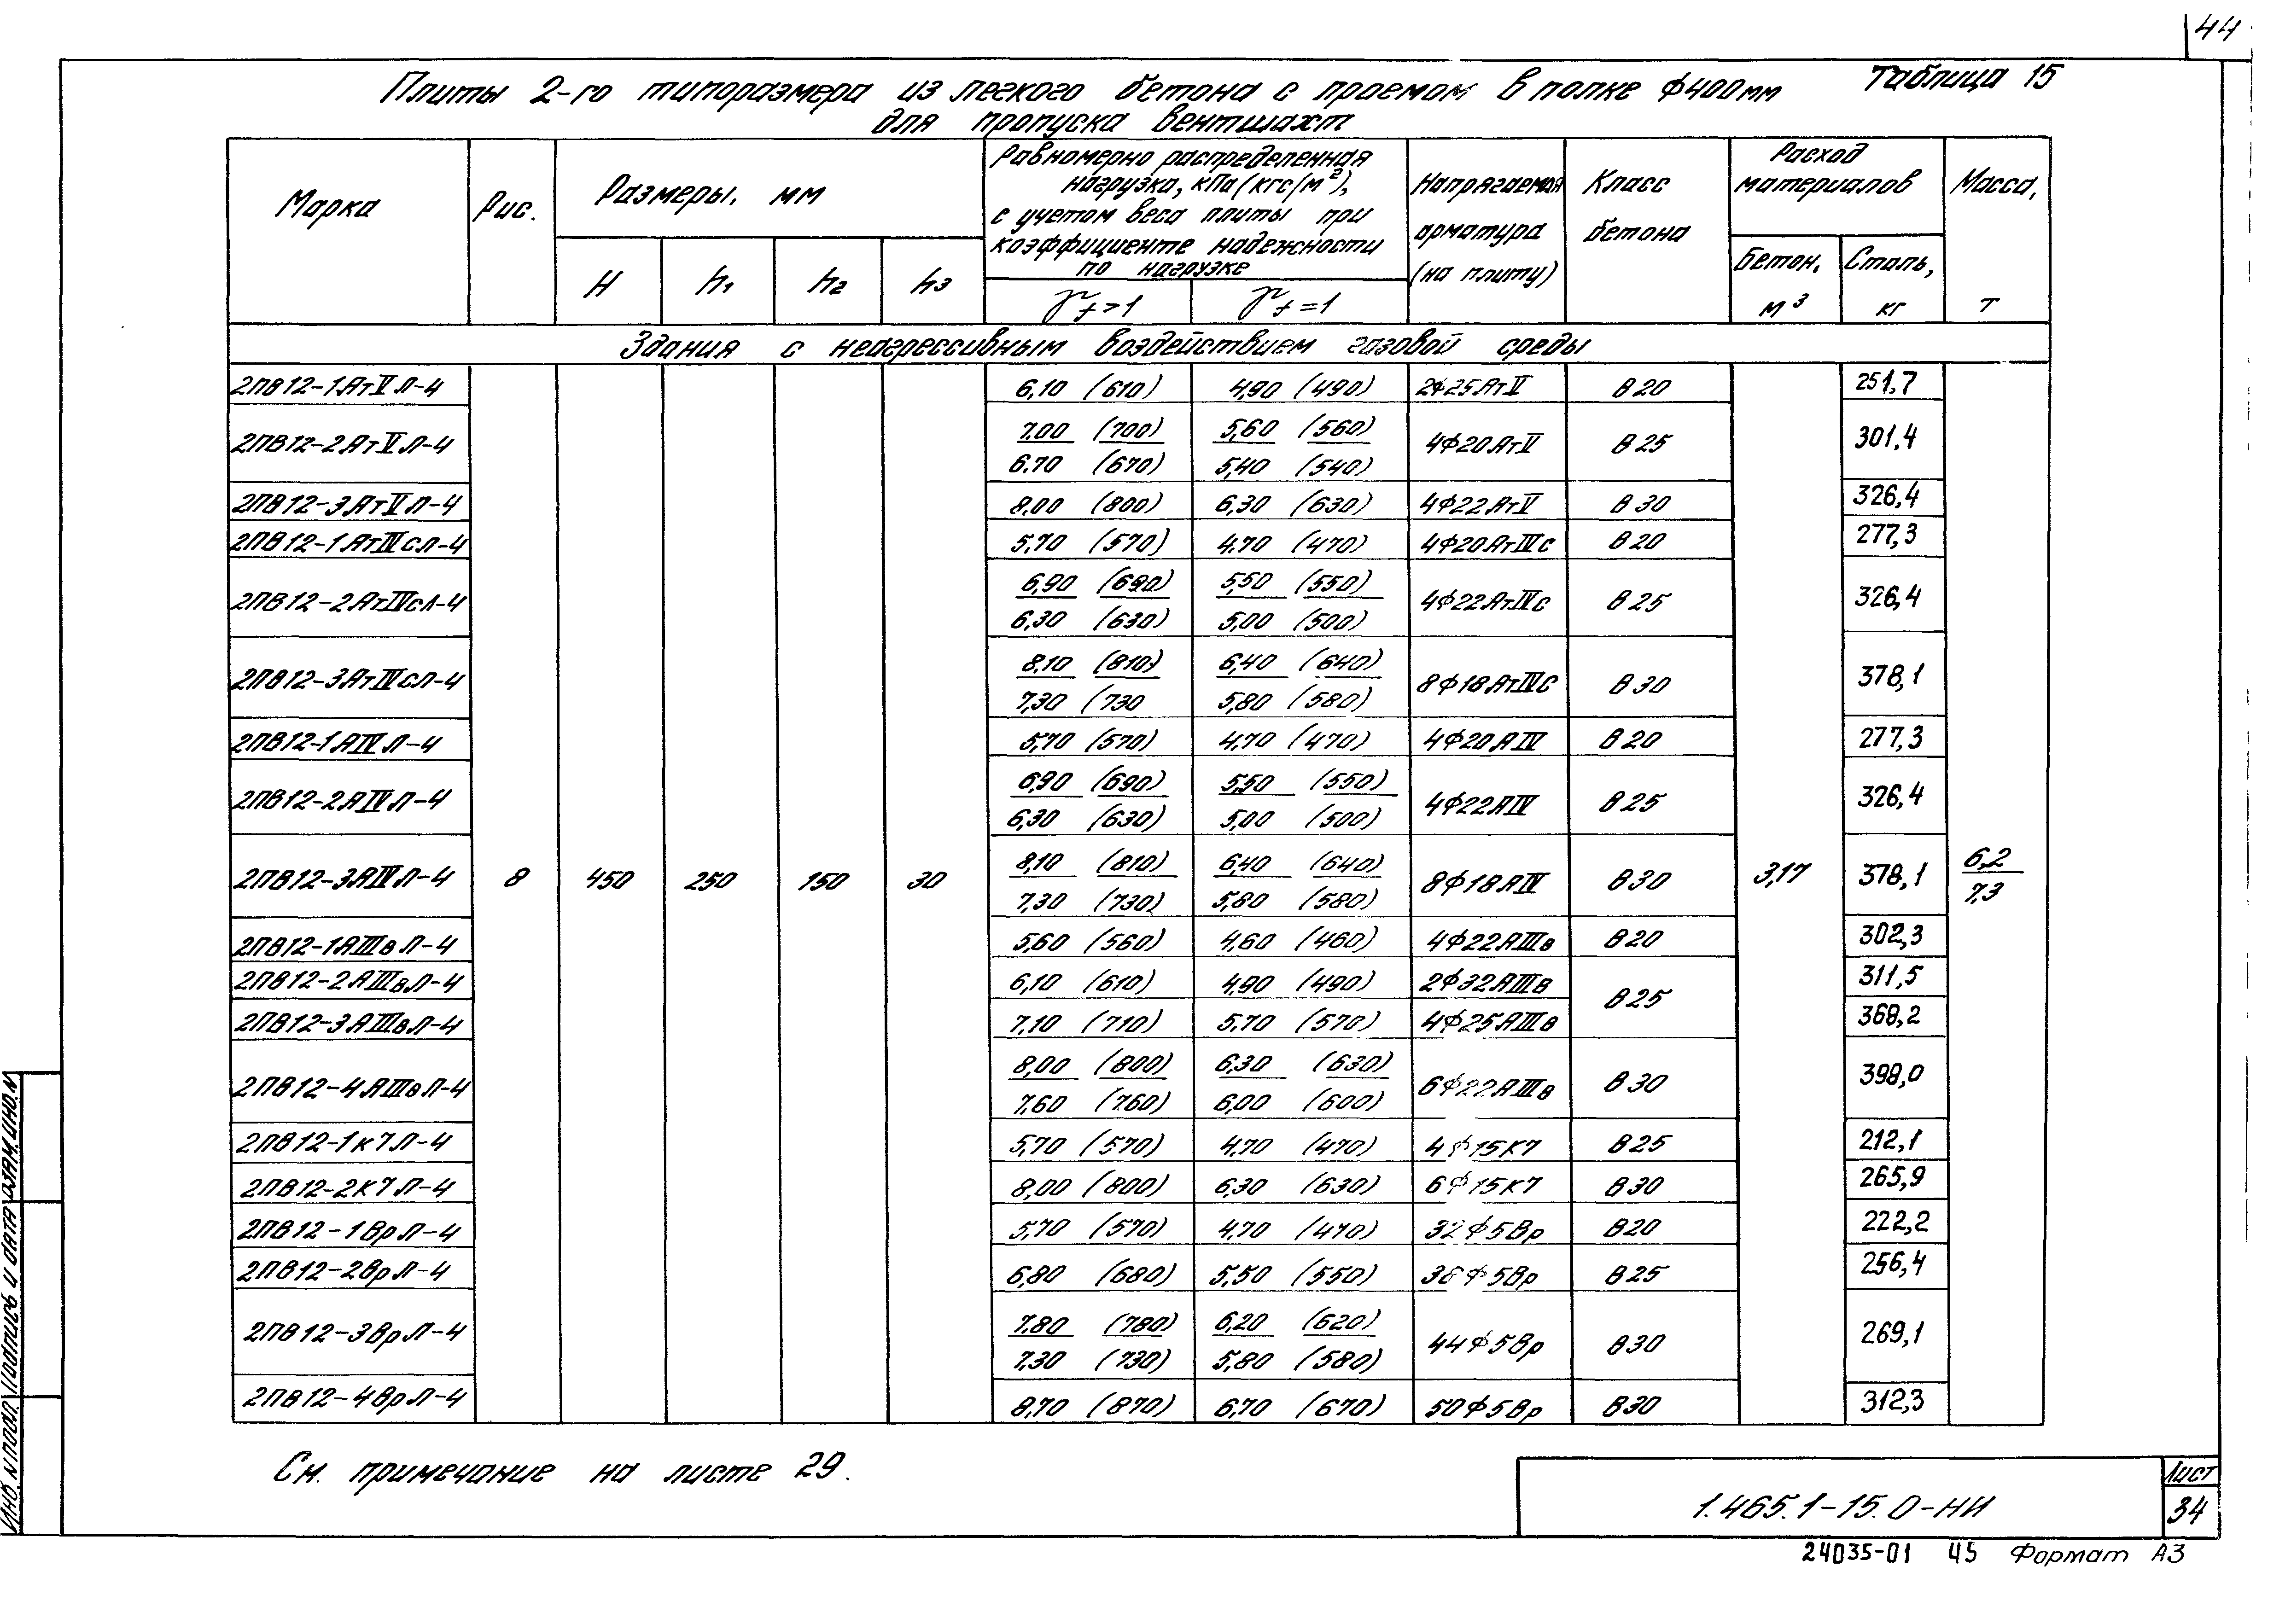 44
Плиты 2-го типоразмера из легкого бетона с проемом в полке ф400мм Таблица 15
для пропуска вентшахт
Марка Рис. Размеры, мм Равномерно распределенная нагрузка, кПа (кгс/м²), с учетом веса плиты при коэффициенте надежности по нагрузке Напрягаемая арматура (на плиту) Класс бетона Расход материалов Масса, т
H h1 h2 h3 γf>1 γf=1 Бетон, м³ Сталь, кг
Здания с неагрессивным воздействием газовой среды
2ПВ12-1АтVЛ-4 6,10 (610) 4,90 (490) 2ф25АтV В20 251,7
2ПВ12-2АтVЛ-4 7,00 (700) 5,60 (560) 4ф20АтV В25 301,4
6,70 (670) 5,40 (540)
2ПВ12-3АтVЛ-4 8,00 (800) 6,30 (630) 4ф22АтV В30 326,4
2ПВ12-1АтIVсЛ-4 5,70 (570) 4,70 (470) 4ф20АтIVс В20 277,3
2ПВ12-2АтIVсЛ-4 6,90 (690) 5,50 (550) 4ф22АтIVс В25 326,4
6,30 (630) 5,00 (500)
2ПВ12-3АтIVсЛ-4 8,10 (810) 6,40 (640) 8ф18АтIVС В30 378,1
7,30 (730 5,80 (580)
2ПВ12-1АIVЛ-4 5,70 (570) 4,70 (470) 4ф20АIV В20 277,3
2ПВ12-2АIVЛ-4 6,90 (690) 5,50 (550) 4ф22АIV В25 326,4
6,30 (630) 5,00 (500)
2ПВ12-3АIVЛ-4 8 450 250 150 30 8,10 (810) 6,40 (640) 8ф18АIV В30 3,17 378,1 6,2
7,30 (730) 5,80 (580) 7,3
2ПВ12-1АIIIвЛ-4 5,60 (560) 4,60 (460) 4ф22АIIIв В20 302,3
2ПВ12-2АIIIвЛ-4 6,10 (610) 4,90 (490) 2ф32АIIIв В25 311,5
2ПВ12-3АIIIвЛ-4 7,10 (710) 5,70 (570) 4ф25АIIIв 368,2
2ПВ12-4АIIIвЛ-4 8,00 (800) 6,30 (630) 6ф22АIIIв В30 398,0
7,60 (760) 6,00 (600)
2ПВ12-1к7Л-4 5,70 (570) 4,70 (470) 4ф15К7 В25 212,1
2ПВ12-2к7Л-4 8,00 (800) 6,30 (630) 6ф15К7 В30 265,9
2ПВ12-1ВрЛ-4 5,70 (570) 4,70 (470) 32ф5Вр В20 222,2
2ПВ12-2ВрЛ-4 6,80 (680) 5,50 (550) 38ф5Вр В25 256,4
2ПВ12-3ВрЛ-4 7,80 (780) 6,20 (620) 44ф5Вр В30 269,1
7,30 (730) 5,80 (580)
2ПВ12-4ВрЛ-4 8,70 (870) 6,70 (670) 50ф5Вр В30 312,3
См. примечание на листе 29.
1.465.1-15.0-НИ
Лист
34
24035-01 45 Формат А3
Инв. N подл. Подпись и дата Взам. инв. N